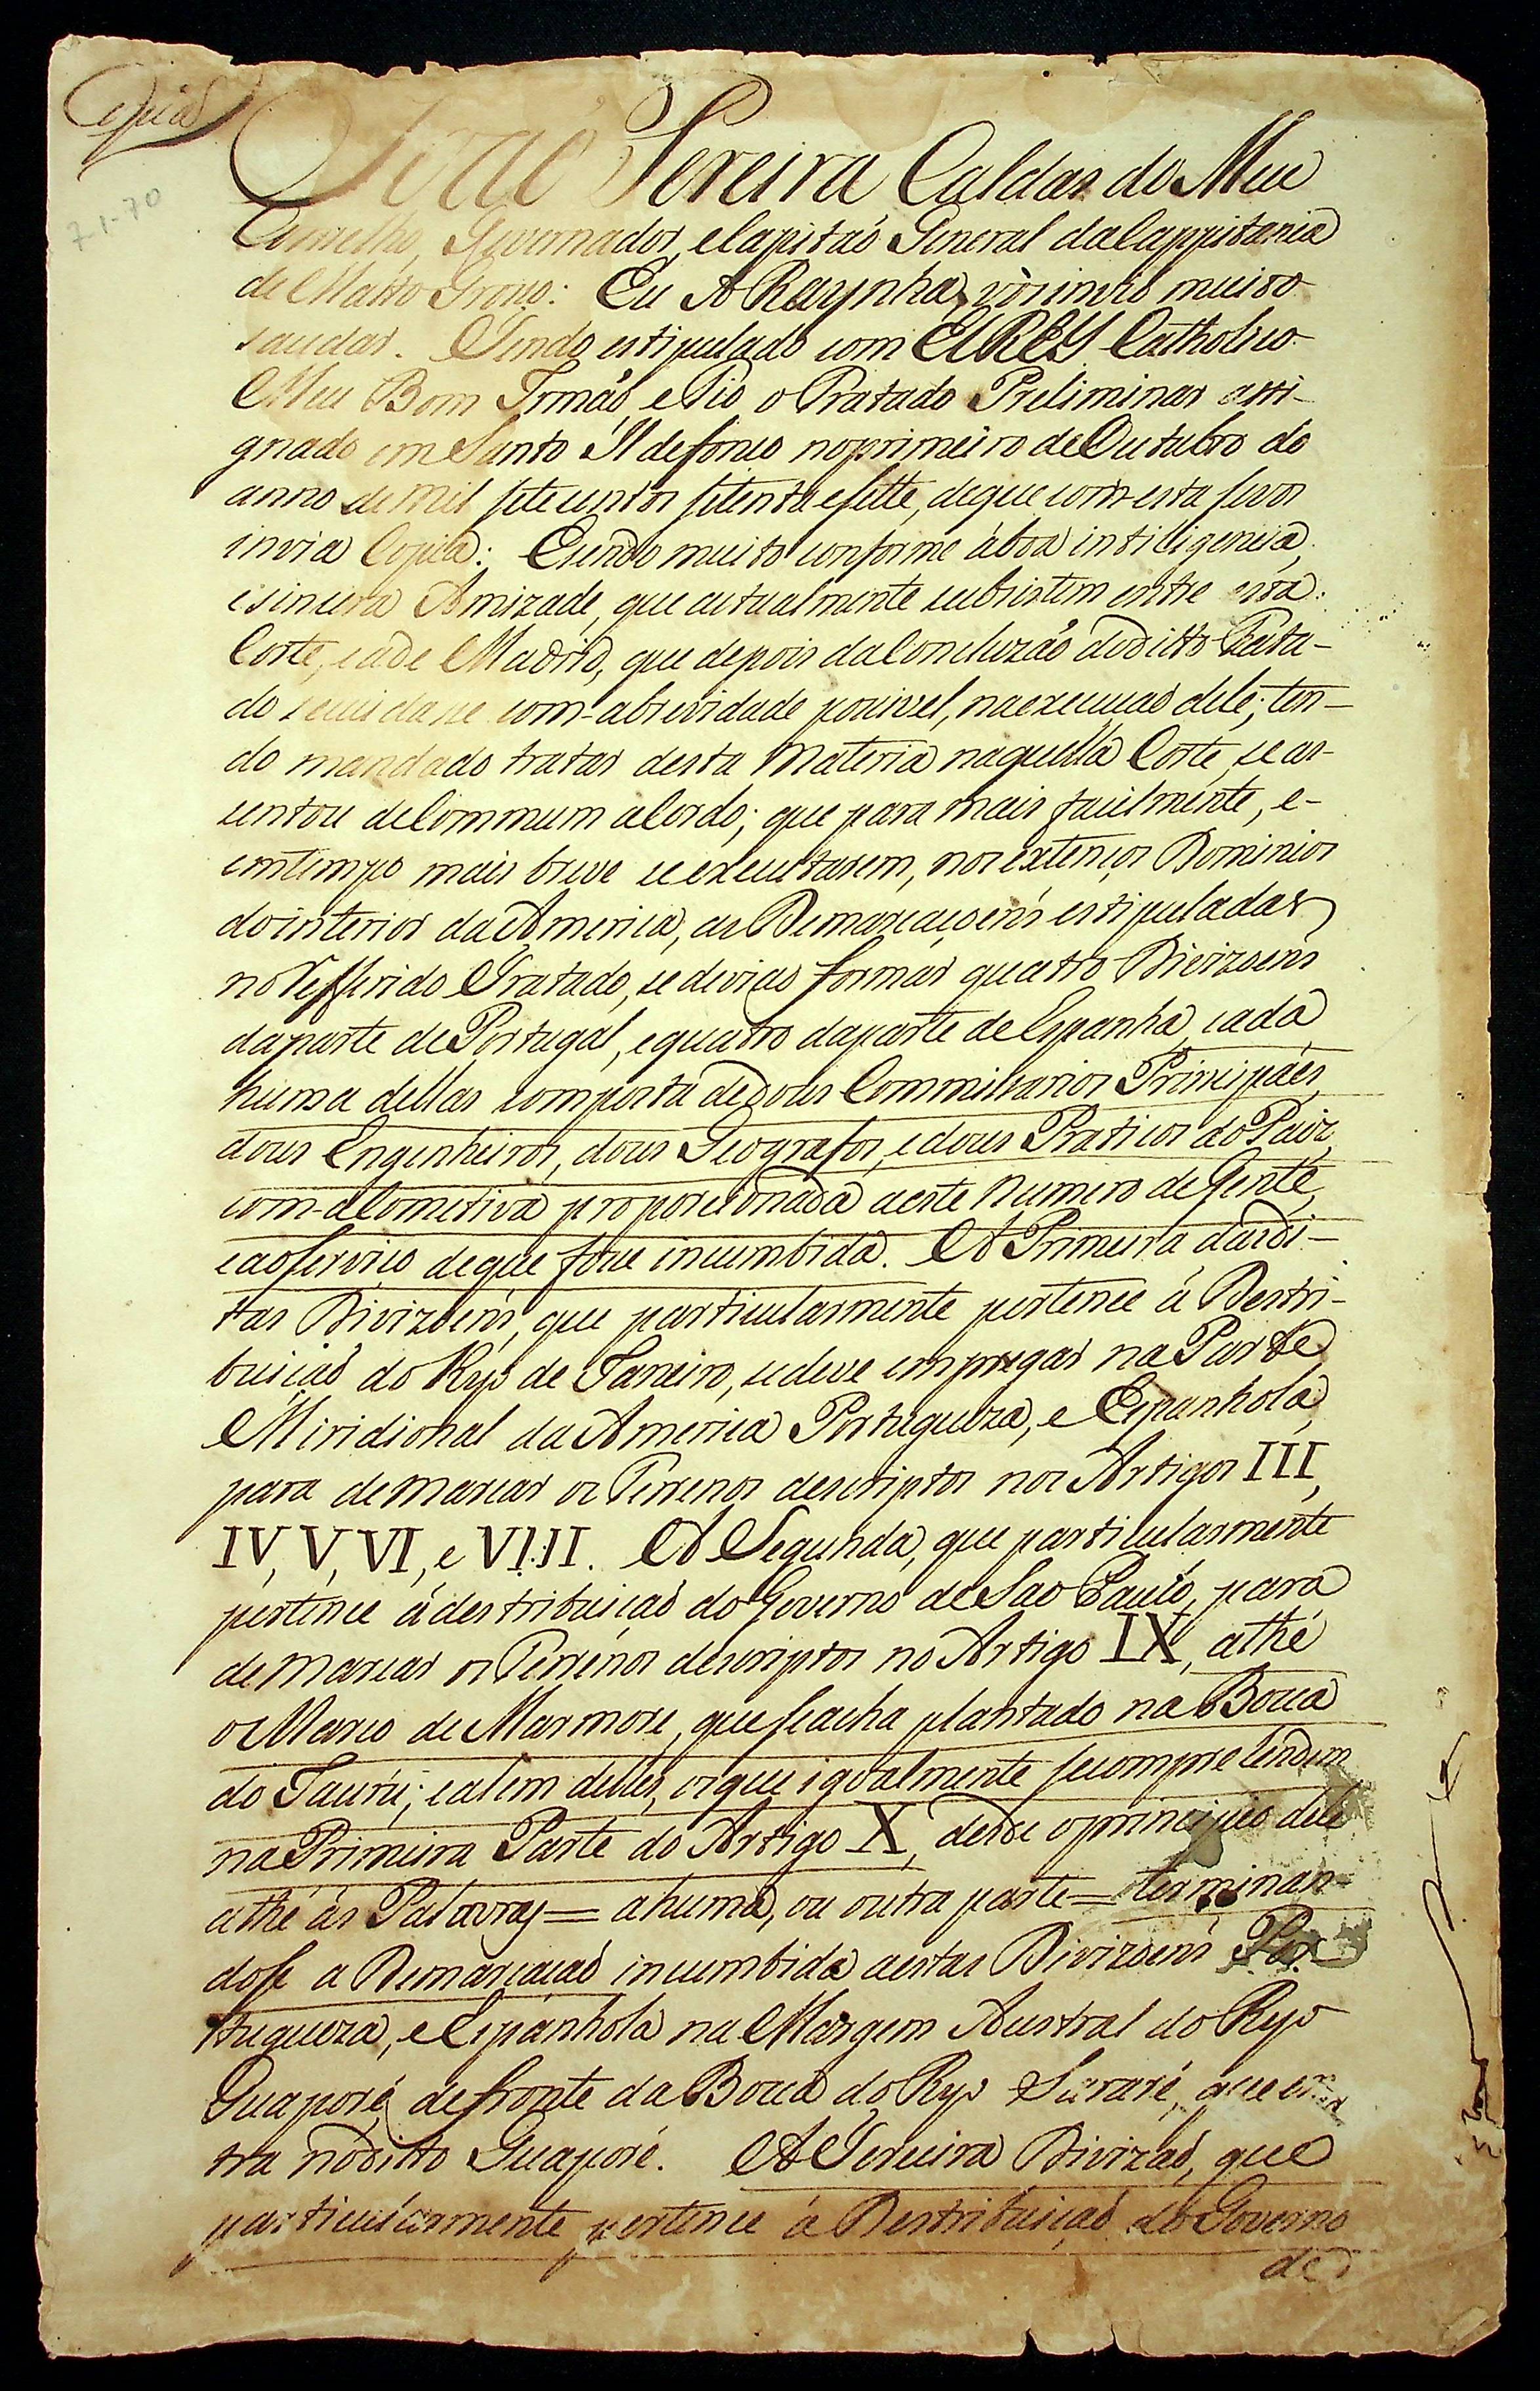 Copia
7-1-70
João Pereira Caldas do Meu
Conselho, Governador, e Capitaõ General da Cappitania
de Matto Grosso: Eu A Raynha vos invio muito
saudar. Tendo estipulado com ElREY Catholico
Meu Bom Irmaõ, e Tio o Tratado Preliminar assi-
gnado em Santo Ildefonço no primeiro de Outubro do
anno de mil sete centos setenta e sette, de que com esta se vos
invia Copia: E sendo muito conforme á boa intiligencia,
e sincera Amizade, que actualmente subsistem entre esta
Corte, e a de Madrid, que depois da Concluzaõ do ditto Trata-
do se cuidase com a brevidade possivel, na execuçaõ dele; ten-
do mandado tratar desta Materia naquella Corte, se as-
sentou de Commum acordo; que para mais facilmente, e
em tempo mais breve se executarem, nos extenços Dominios
do interior da America, as Demarcaçoens estipuladas
no Refferido Tratado, se deviaõ formar quatro Divizoens
da parte de Portugal, e quatro da parte de Espanha, cada
huma dellas composta de dous Commissarios Principaes,
dous Engenheiros, dous Geografos, e dous Praticos do Paiz,
com a Comitiva proporcionada a este Numero de Gente,
e ao serviço de que fose incumbida. A Primeira das di-
tas Divizoens, que particularmente pertence á Destri-
buiçaõ do Ryo de Janeiro, se deve empregar na Parte
Miridional da America Portugueza, e Espanhola,
para demarcar os Terrenos descriptos nos Artigos III,
IV, V, VI, e VIII. A Segunda, que particularmente
pertence á destribuiçaõ do Governo de Sao Paulo, para
demarcar os Terrenos descriptos no Artigo IX, athé
o Marco de Marmore, que se acha plantado na Boca
do Jaurú; e alem delles, os que igoalmente se comprehendem
na Primeira Parte do Artigo X, desde o principio dele
athé as Palavras = a huma, ou outra parte = terminan-
dose a Demarcaçaõ incumbida a estas Divizoens Por-
tugueza, e Espanhola na Margem Austral do Ryo
Guaporé, defronte da Boca do Ryo Sararé, que en-
tra no ditto Guaporé. A Terceira Divizaõ, que
particularmente pertence á Destribuiçaõ do Governo
de